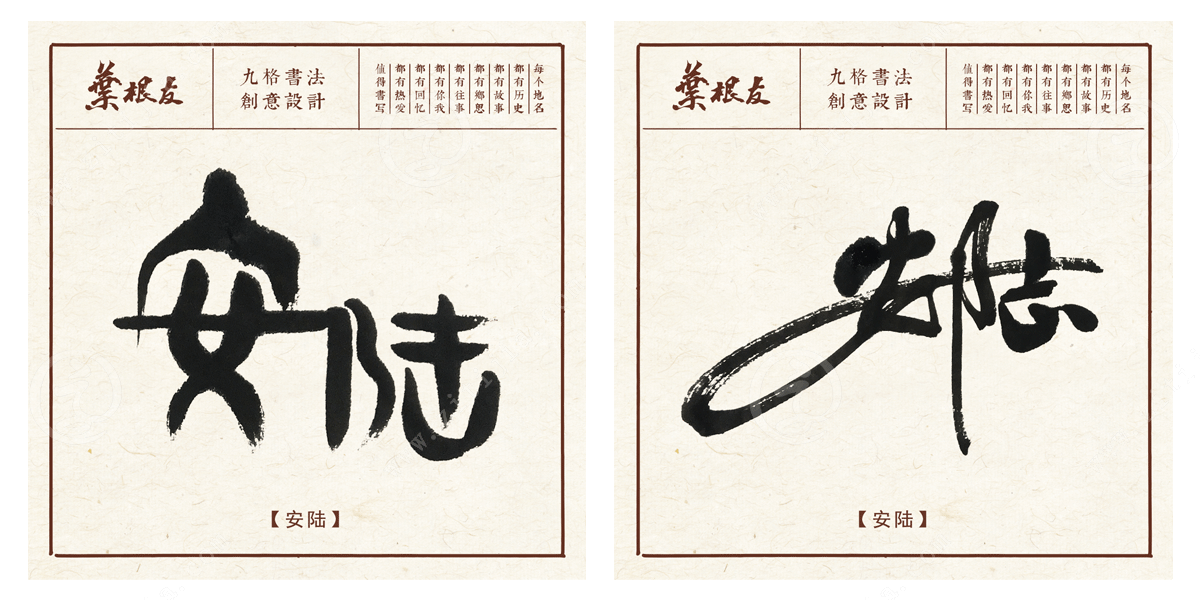 葉根友
九格書法
創意設計
每个地名
都有历史
都有故事
都有鄉愁
都有往事
都有你我
都有回忆
都有热爱
值得書写
安陆
【安陆】
葉根友
九格書法
創意設計
每个地名
都有历史
都有故事
都有鄉愁
都有往事
都有你我
都有回忆
都有热爱
值得書写
安陆
【安陆】